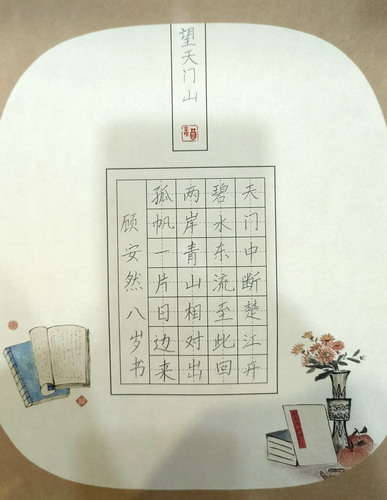 望天门山
天门中断楚江开
碧水东流至此回
两岸青山相对出
孤帆一片日边来
顾安然八岁书